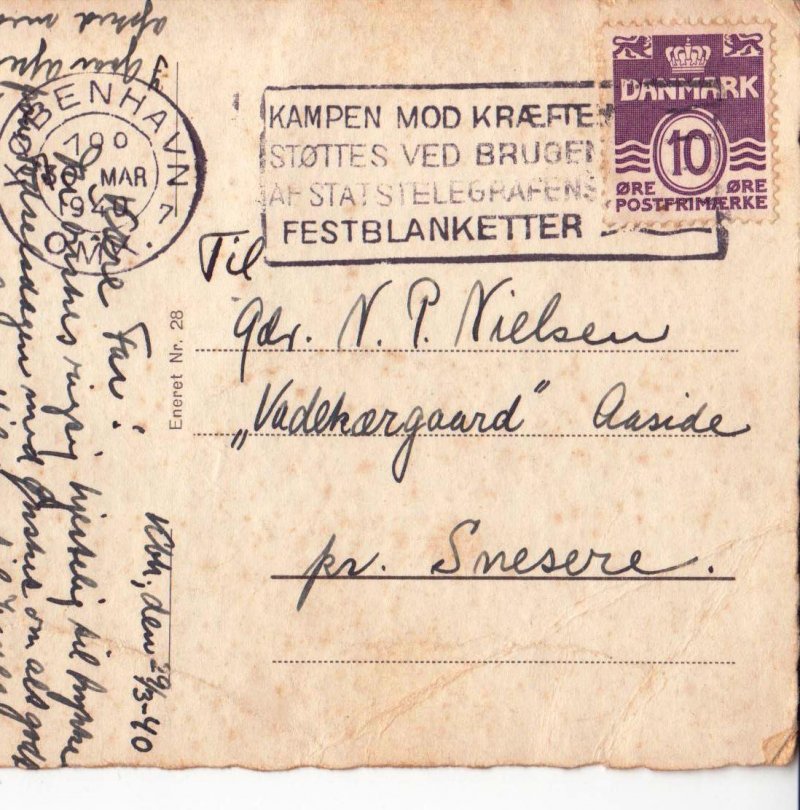 KØBENHAVN
19 0
MAR
1940
7
OMK.
KAMPEN MOD KRÆFTE
STØTTES VED BRUGEN
AF STATSTELEGRAFENS
FESTBLANKETTER
DANMARK
10
ØRE ØRE
POSTFRIMÆRKE
Til
Gdr. N. P. Nielsen
„Vadekærgaard" Aaside
pr. Snesere.
Eneret Nr. 28
Kbh, den 29/3-40
Kære Far!
ønskes rigtig hjertelig til lykke
fødselsdagen med Ønsket om alt godt